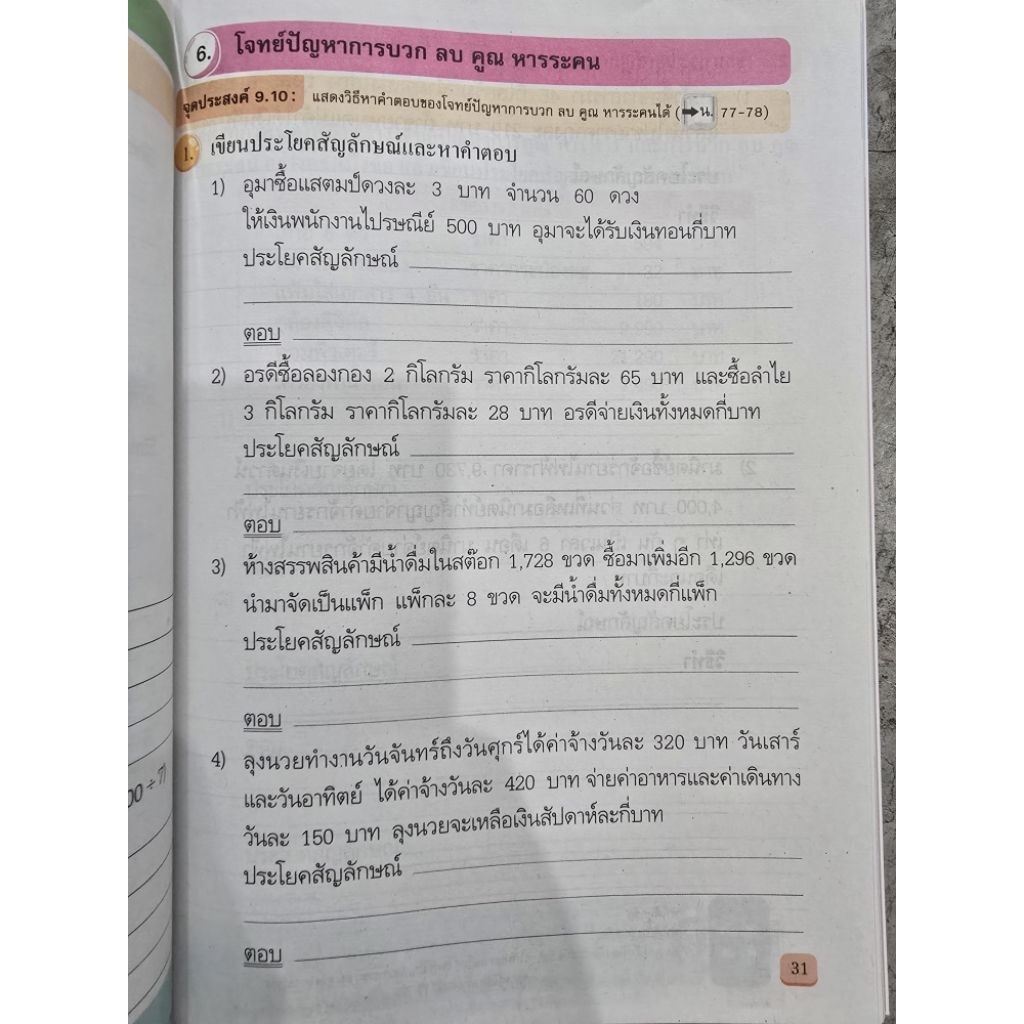 6. โจทย์ปัญหาการบวก ลบ คูณ หารระคน
จุดประสงค์ 9.10 : แสดงวิธีหาคำตอบของโจทย์ปัญหาการบวก ลบ คูณ หารระคนได้ (➡น. 77-78)
1. เขียนประโยคสัญลักษณ์และหาคำตอบ
1) อุมาซื้อแสตมป์ดวงละ 3 บาท จำนวน 60 ดวง
ให้เงินพนักงานไปรษณีย์ 500 บาท อุมาจะได้รับเงินทอนกี่บาท
ประโยคสัญลักษณ์
ตอบ
2) อรดีซื้อลองกอง 2 กิโลกรัม ราคากิโลกรัมละ 65 บาท และซื้อลำไย
3 กิโลกรัม ราคากิโลกรัมละ 28 บาท อรดีจ่ายเงินทั้งหมดกี่บาท
ประโยคสัญลักษณ์
ตอบ
3) ห้างสรรพสินค้ามีน้ำดื่มในสต๊อก 1,728 ขวด ซื้อมาเพิ่มอีก 1,296 ขวด
นำมาจัดเป็นแพ็ก แพ็กละ 8 ขวด จะมีน้ำดื่มทั้งหมดกี่แพ็ก
ประโยคสัญลักษณ์
ตอบ
4) ลุงนวยทำงานวันจันทร์ถึงวันศุกร์ได้ค่าจ้างวันละ 320 บาท วันเสาร์
และวันอาทิตย์ ได้ค่าจ้างวันละ 420 บาท จ่ายค่าอาหารและค่าเดินทาง
วันละ 150 บาท ลุงนวยจะเหลือเงินสัปดาห์ละกี่บาท
ประโยคสัญลักษณ์
ตอบ
31